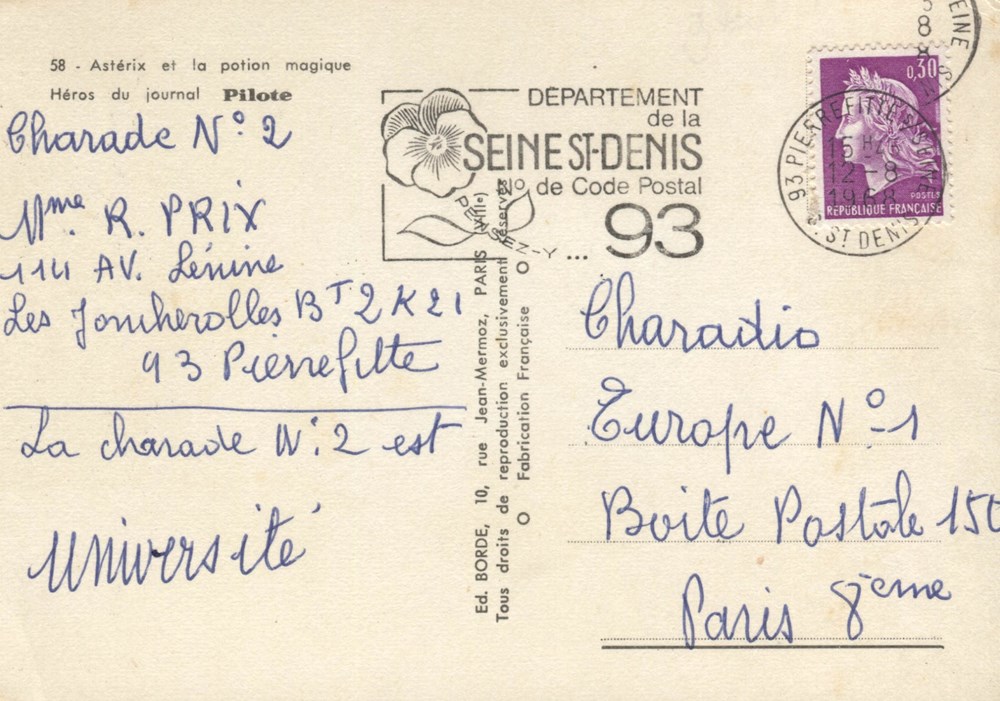 58 - Astérix et la potion magique
Héros du journal Pilote
Charade N° 2
Mme R. PRIX
114 AV. Lénine
Les Joncherolles BT 2 K21
93 Pierrefitte
La charade N° 2 est
Université
DÉPARTEMENT
de la
SEINE ST-DENIS
No de Code Postal
93
PENSEZ-Y ...
Ed. BORDE, 10, rue Jean-Mermoz, PARIS (VIIIe)
Tous droits de reproduction exclusivement réservés
Fabrication Française
0,30
POSTES
RÉPUBLIQUE FRANÇAISE
93 PIERREFITTE S/ SEINE
15 H
12-8
1968
ST DENIS
EINE
8
Charadio
Europe N° 1
Boite Postale 150
Paris 8eme